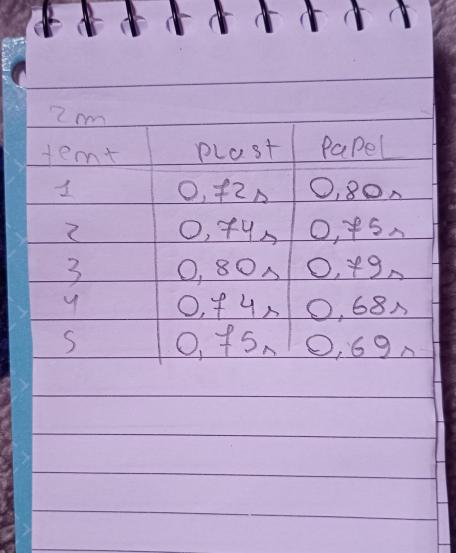 2m
tent Plast Papel
1 0,72s 0,80s
2 0,74s 0,75s
3 0,80s 0,79s
4 0,74s 0,68s
5 0,75s 0,69s